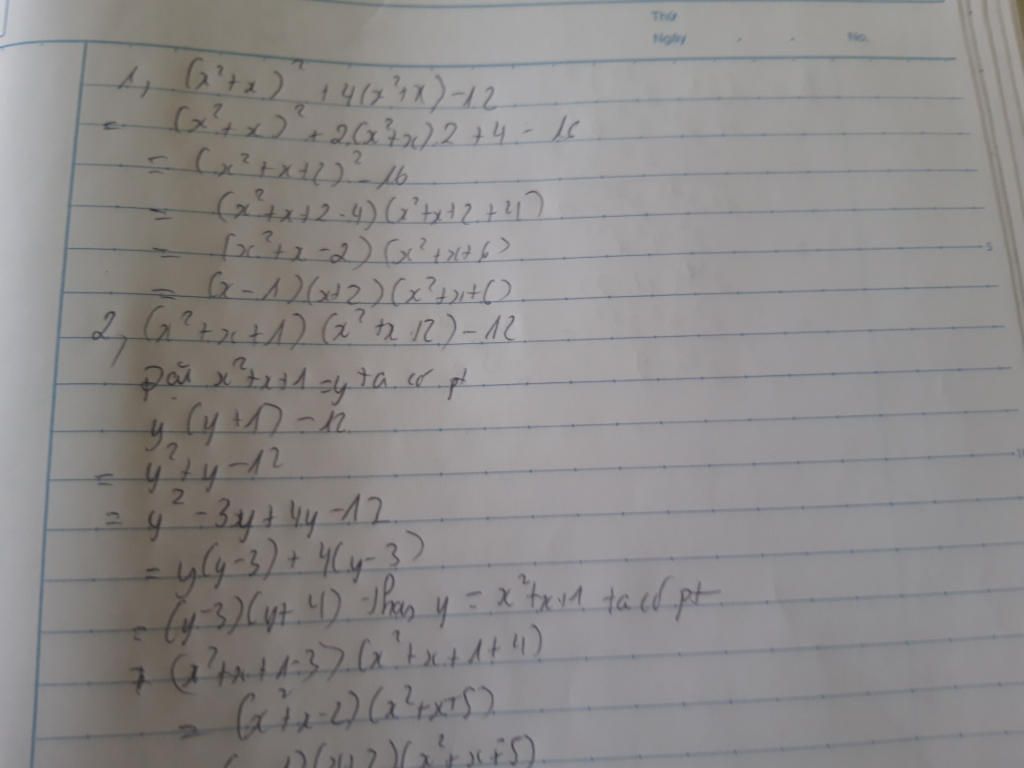 Thứ
Ngày . . No.
1, (x²+x)² + 4(x²+x) - 12
= (x²+x)² + 2(x²+x).2 + 4 - 16
= (x²+x+2)² - 16
= (x²+x+2-4)(x²+x+2+4)
= (x²+x-2)(x²+x+6)
5
= (x-1)(x+2)(x²+x+6)
2, (x²+x+1)(x²+x+2)-12
Đặt x²+x+1=y ta có pt
y(y+1)-12
= y²+y-12
= y²-3y+4y-12
= y(y-3)+4(y-3)
= (y-3)(y+4) Thay y = x²+x+1 ta có pt
(x²+x+1-3)(x²+x+1+4)
= (x²+x-2)(x²+x+5)
(x+2)(x²+x+5)